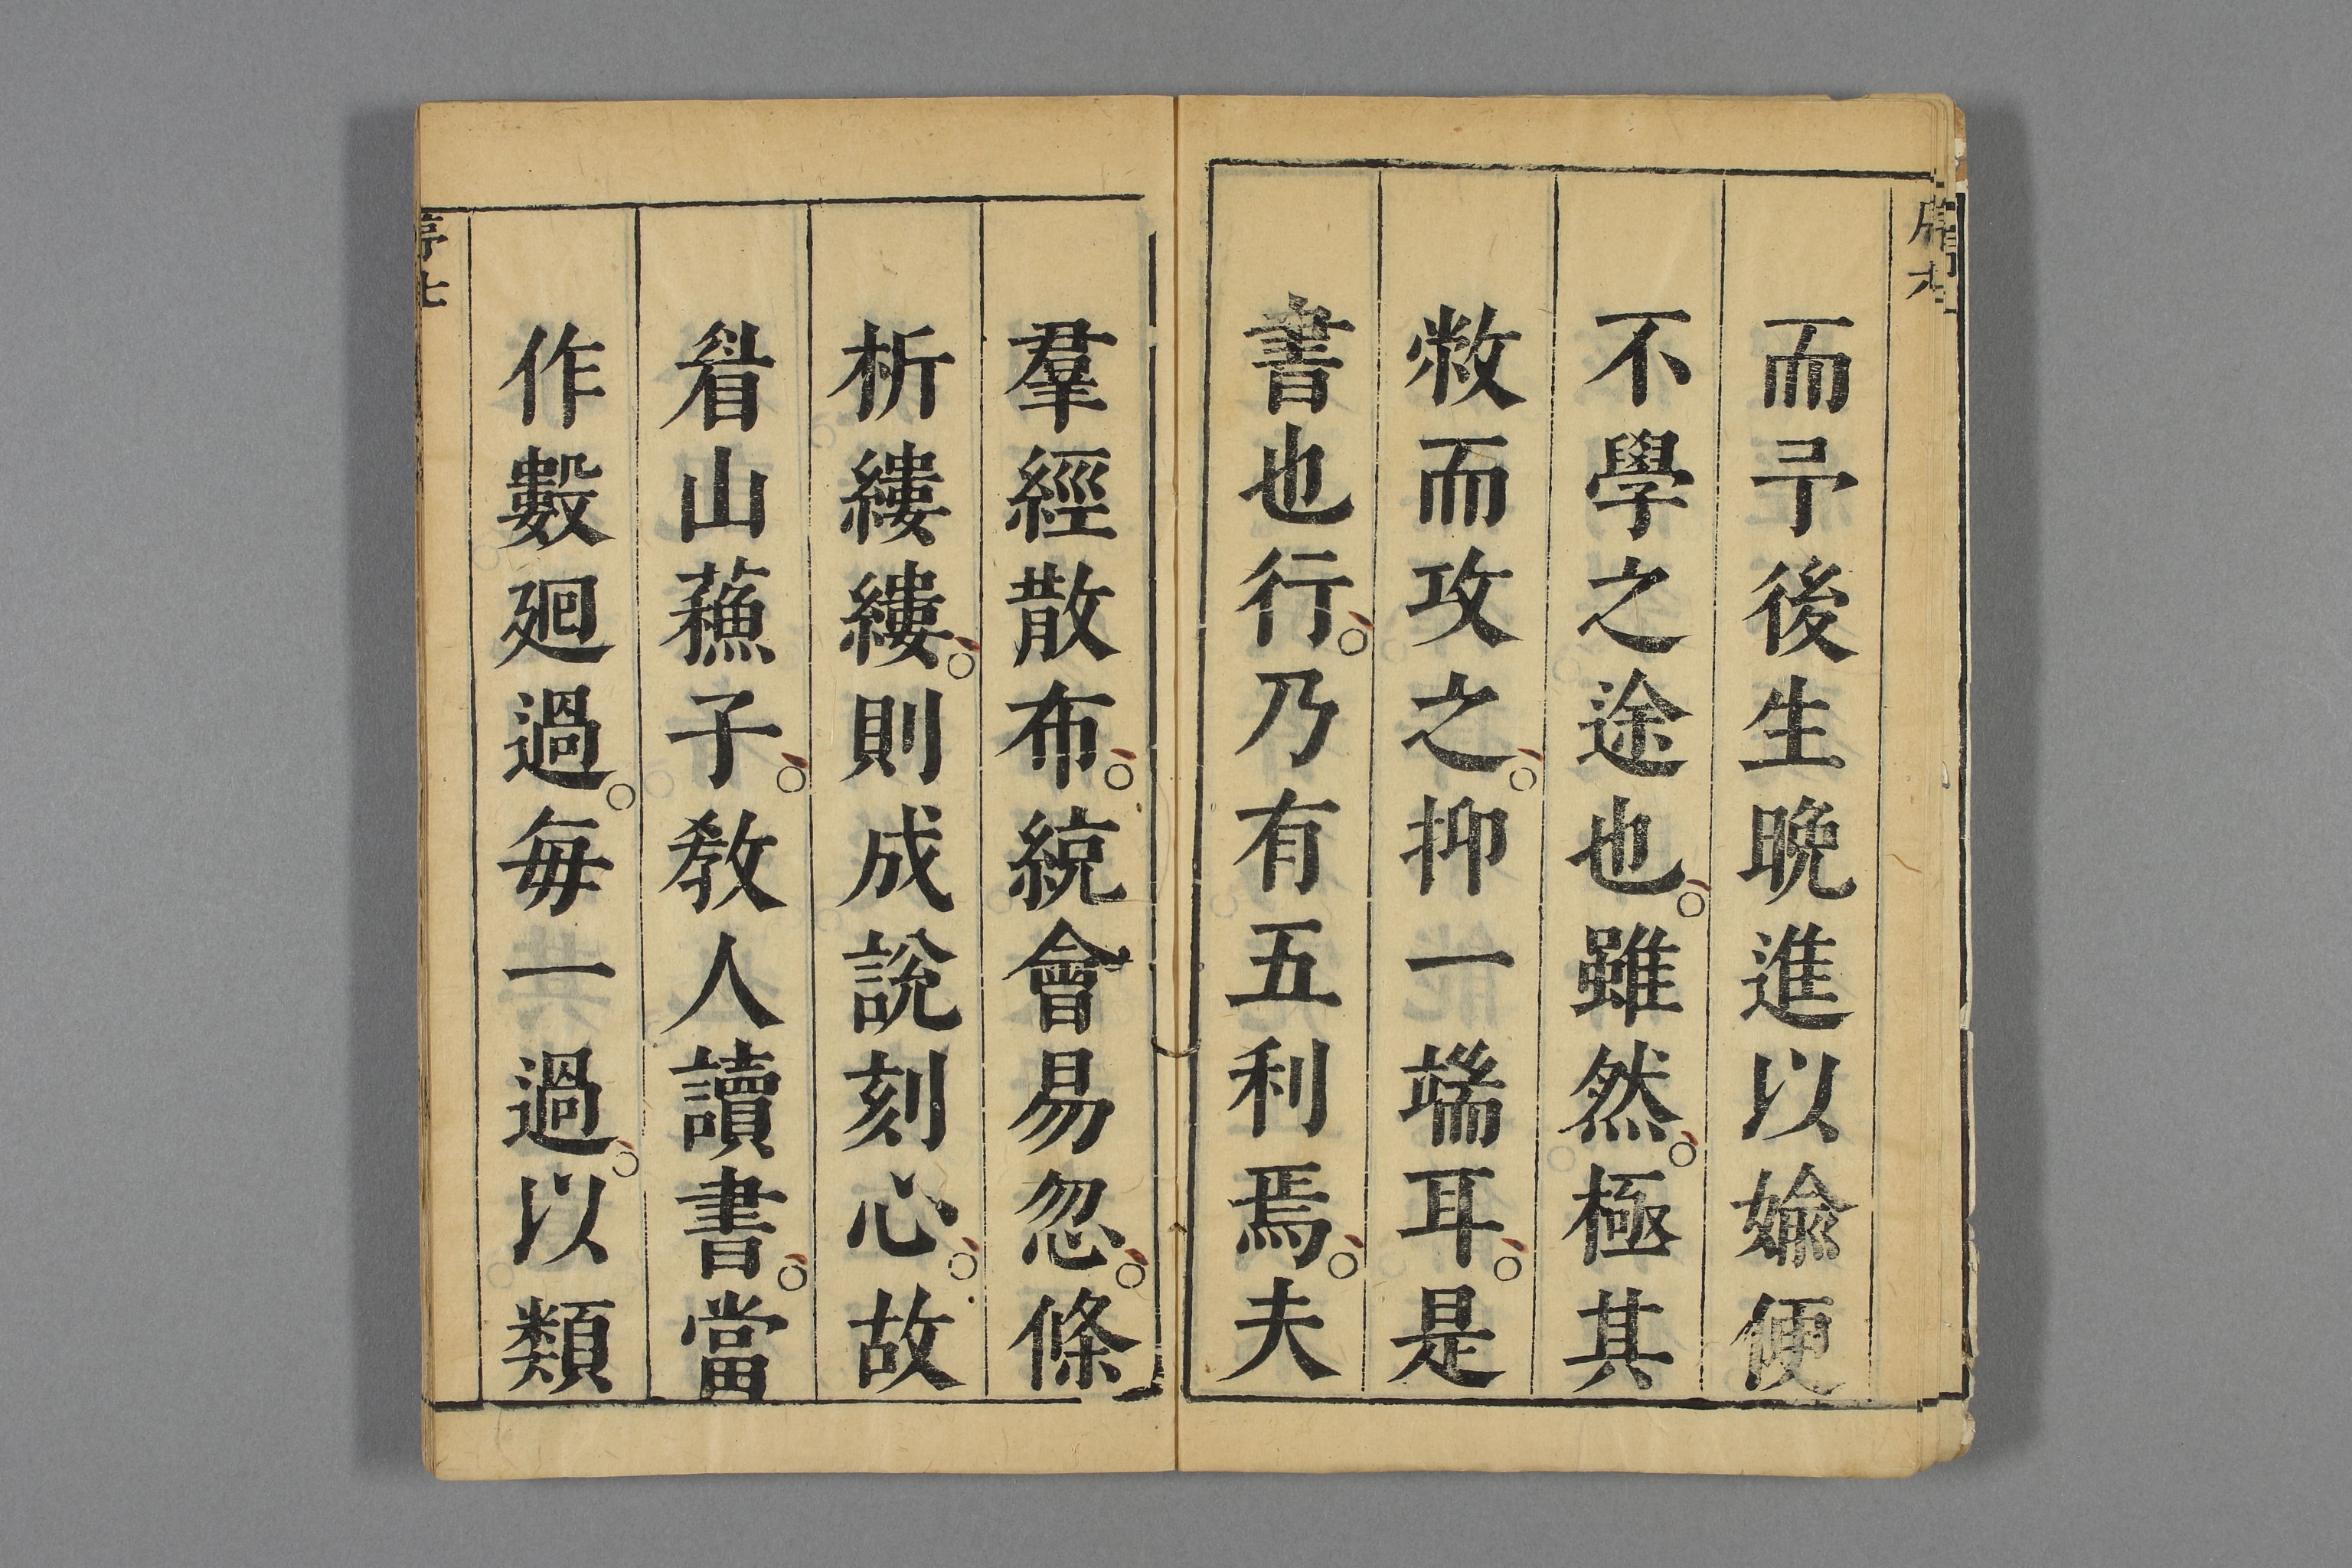 而予後生晚進以婾便
不學之途也。雖然。極其
敝而攻之。抑一端耳。是
書也行。乃有五利焉。夫
羣經散布。統會易忽。條
析縷縷。則成說刻心。故
眉山蘓子。敎人讀書。當
作數廻過。每一過。以類